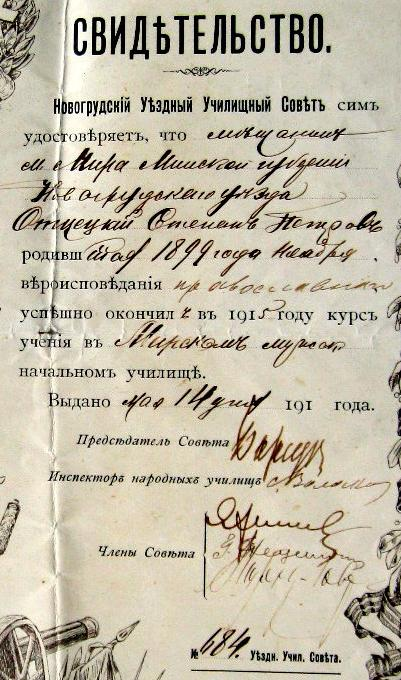 СВИДѢТЕЛЬСТВО.
Новогрудскій Уѣздный Училищный Совѣтъ симъ
удостовѣряетъ, что мѣщанинъ
м. Мира Минской губерніи
Новогрудскаго уѣзда
Степанъ Петровъ
родившійся 1899 года Ноября
вѣроисповѣданія православнаго
успѣшно окончилъ въ 1915 году курсъ
ученія въ Мирскомъ мужском
начальномъ училищѣ.
Выдано мая 14 дня 191 года.
Предсѣдатель Совѣта
Инспекторъ народныхъ училищъ
Члены Совѣта
№ 684. Уѣздн. Учил. Совѣта.